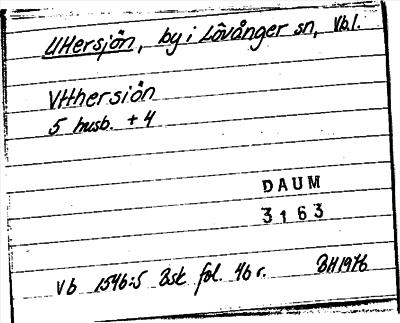 Uttersjön, by i Lövånger sn, Vb.l.
Vtthersiön
5 husb. + 4
DAUM
3163
Vb 1546:5 Bsk fol. 46 r. BH 1976